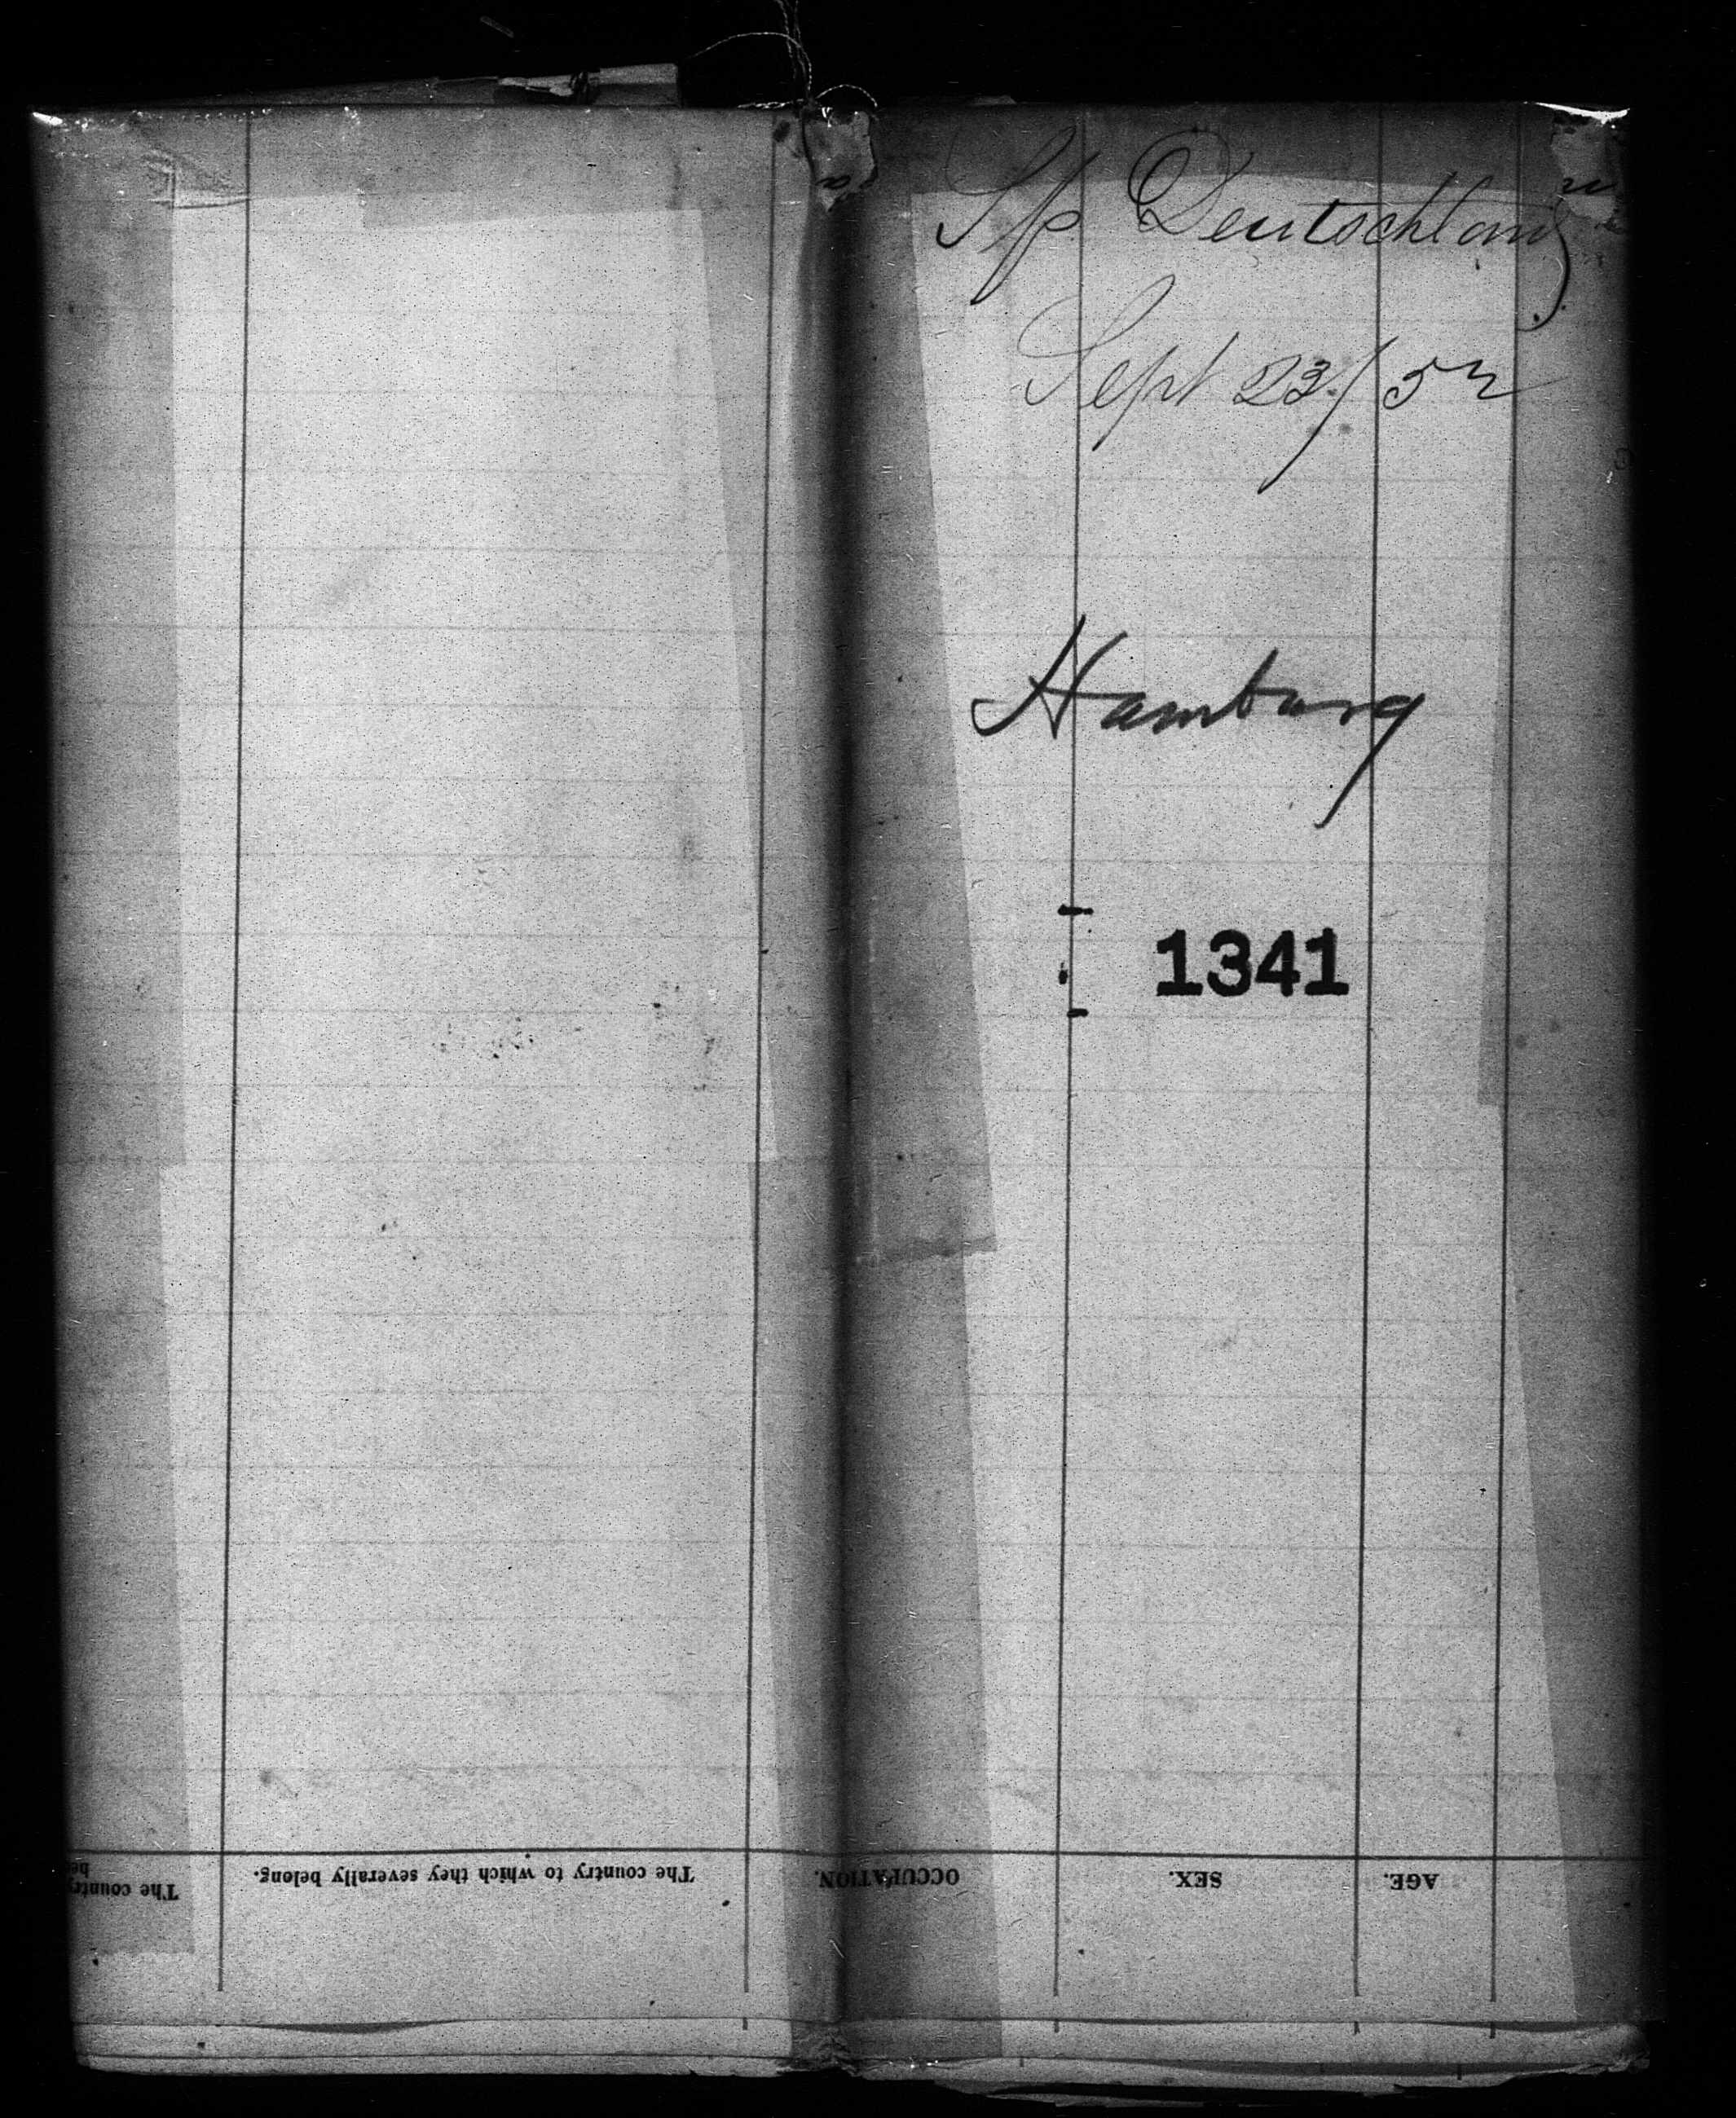 Sp Deutschland
Sept 23/52
Hamburg
1341
AGE.
SEX.
OCCUPATION.
The country to which they severally belong.
The country